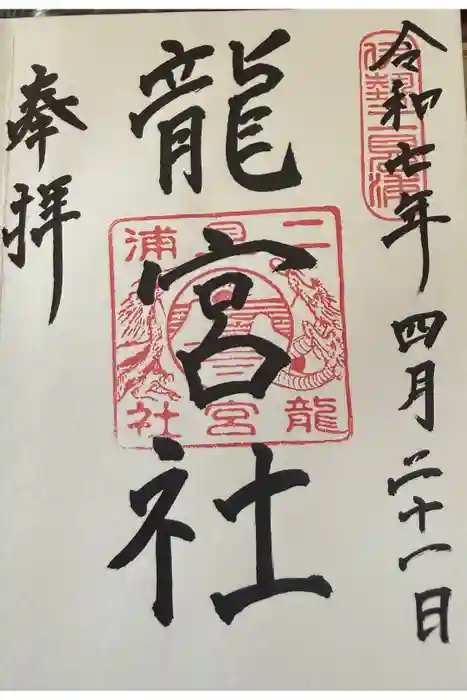 令和七年四月二十一日
伊勢二見浦
龍宮社
二見浦
龍宮社
奉拝